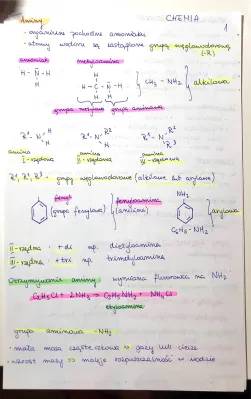 CHEMIA
1
Aminy
- organiczne pochodne amoniaku
- atomy wodoru są zastąpione grupą węglowodorową (-R)
amoniak metyloamina
H - N - H
H
H - C - N - H
CH₃ - NH₂ alkilowa
grupa metylowa grupa aminowa
R¹ - N H H R¹ - N R² H R¹ - N R² R³
amina I-rzędowa amina II-rzędowa amina III-rzędowa
R¹, R², R³ - grupy węglowodorowe (alkilowe lub arylowe)
fenyl fenyloamina NH₂
(grupa fenylowa) (anilina) arylowa
C₆H₅ - NH₂
II-rzędowa + di np. dietyloamina
III-rzędowa + tri np. trimetyloamina
Otrzymywanie aminy wymiana fluorowca na NH₂
C₂H₅Cl + 2NH₃ → C₂H₅NH₂ + NH₄Cl
etyloamina
grupa aminowa -NH₂
- mała masa cząsteczkowa ⇒ gazy lub ciecze
- wzrost masy ⇒ maleje rozpuszczalność w wodzie